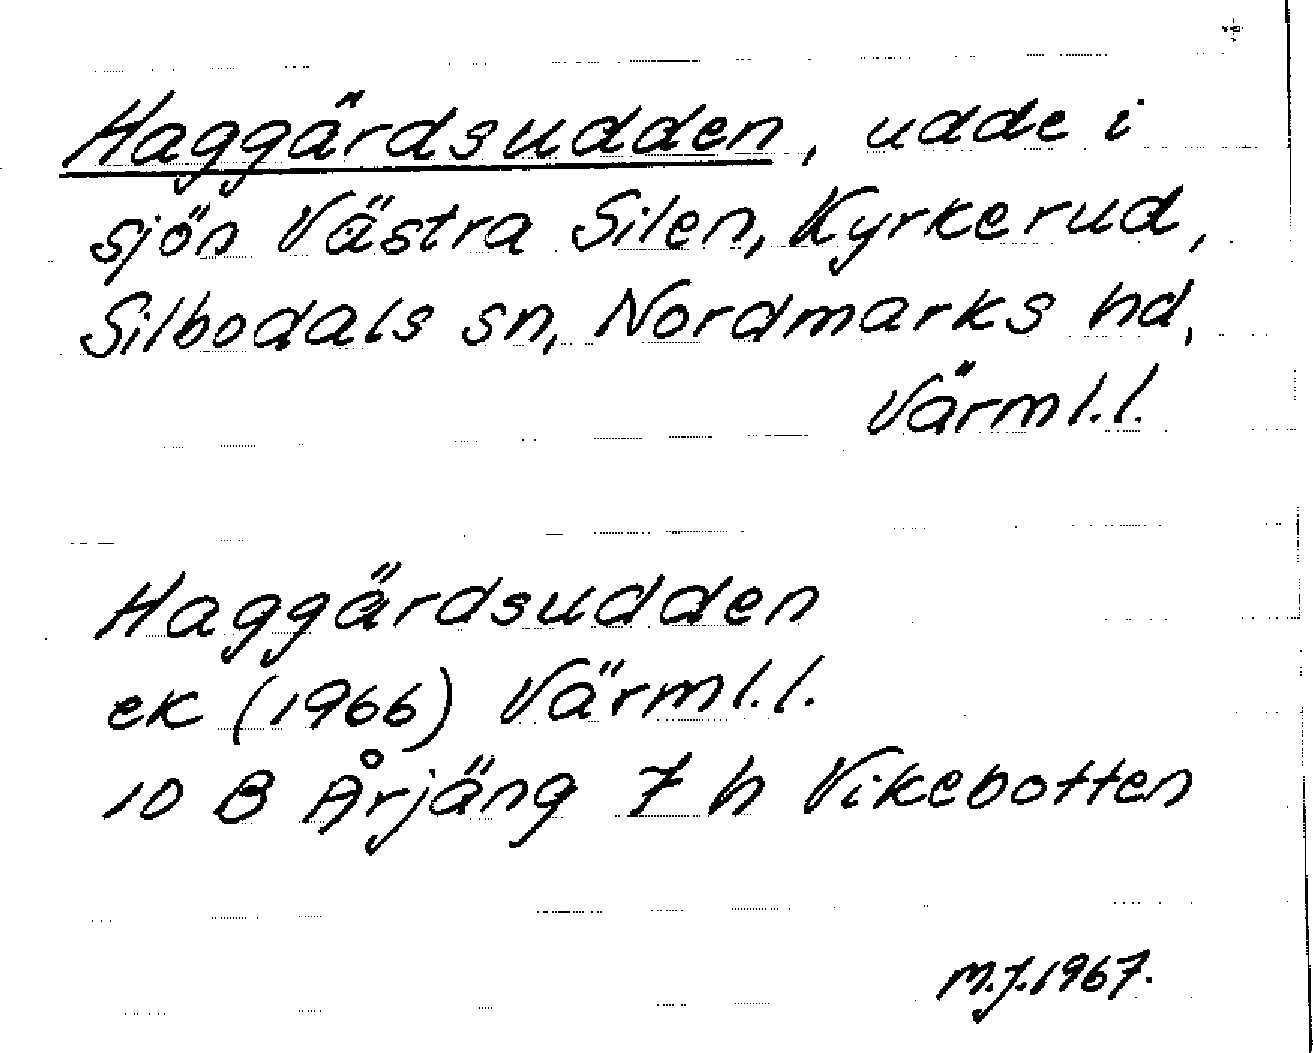 Haggärdsudden, udde i
sjön Västra Silen, Kyrkerud,
Silbodals sn, Nordmarks hd,
Värml.l.
Haggärdsudden
ek (1966) Värml.l.
10 B Årjäng 7 h Vikebotten
M.J.1967.